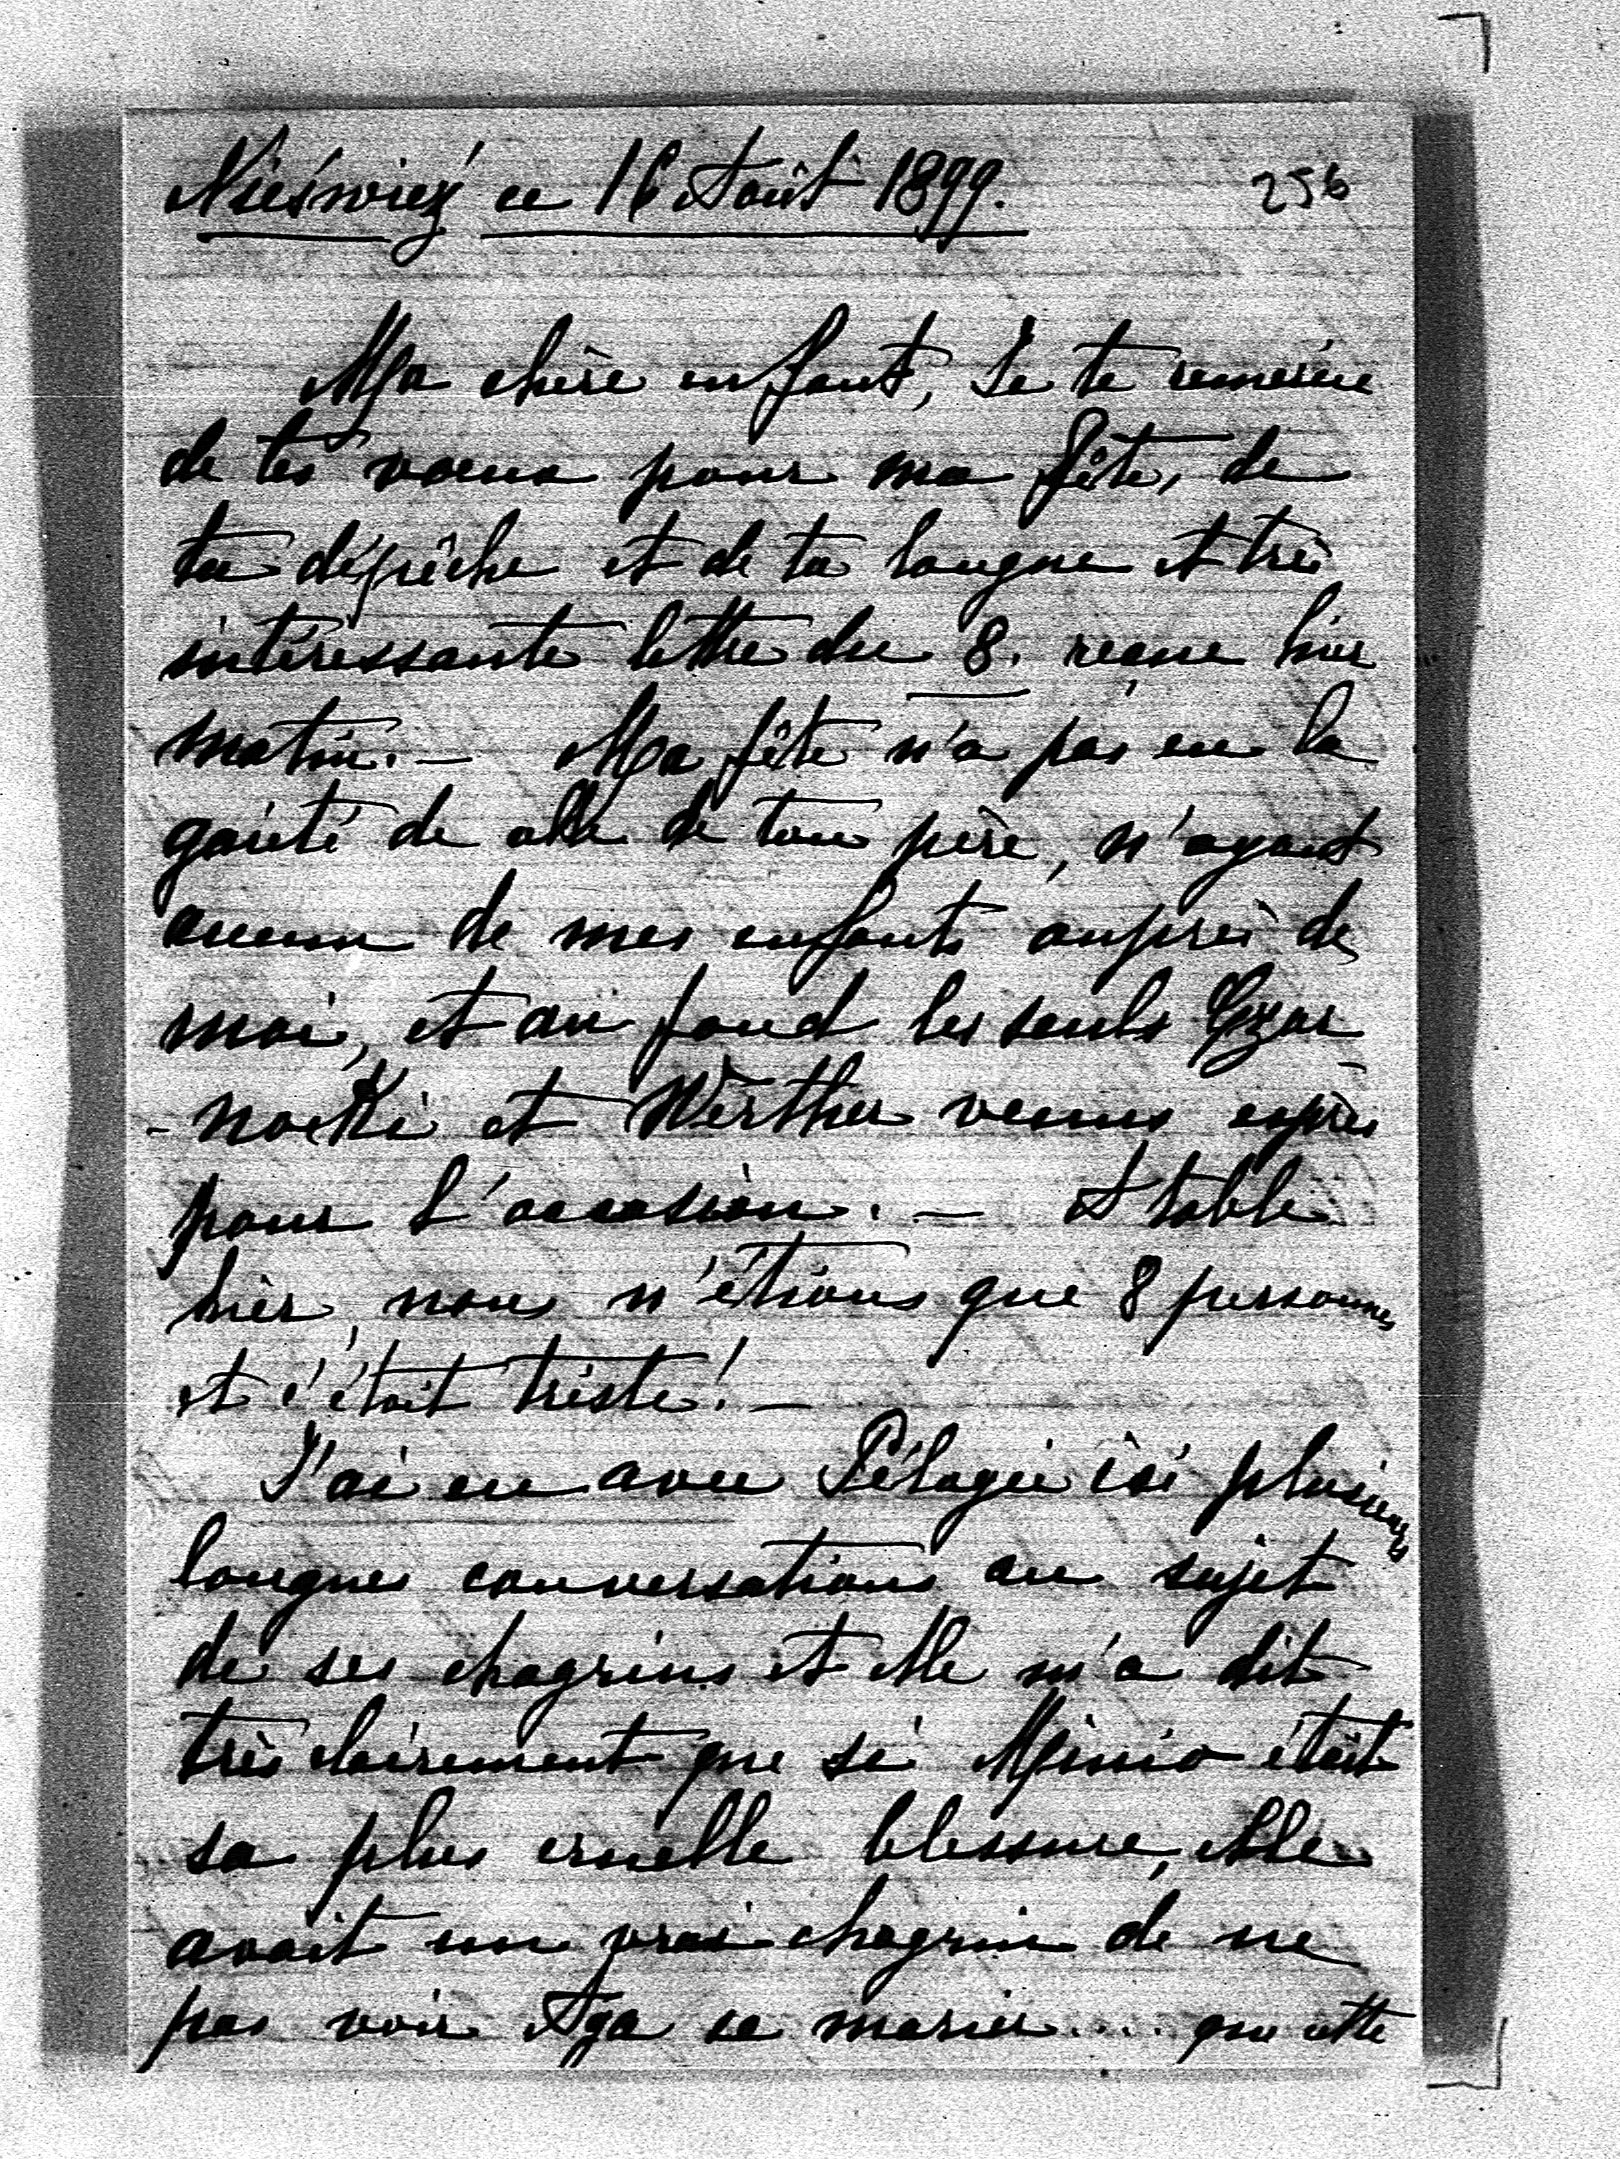 Nieświez ce 16 Août 1899.
256
Ma chère enfant, Je te remercie
de tes voeux pour ma fête, de
ta dépêche et de ta longue et très
intéressante lettre du 8. reçue hier
matin. — Ma fête n'a pas eu la
gaieté de celle de ton père, n'ayant
aucun de mes enfants auprès de
moi, et au fond les seuls Czar
-nocki et Werther venus exprès
pour l'occasion. — A table
hier, nous n'étions que 8 personnes
et c'était triste! —
J'ai eu avec Pélagie ici plusieurs
longues conversations au sujet
de ses chagrins et elle m'a dit
très clairement que si Minio était
sa plus cruelle blessure, elle
avait un vrai chagrin de ne
pas voir Aga se marier.... que cette